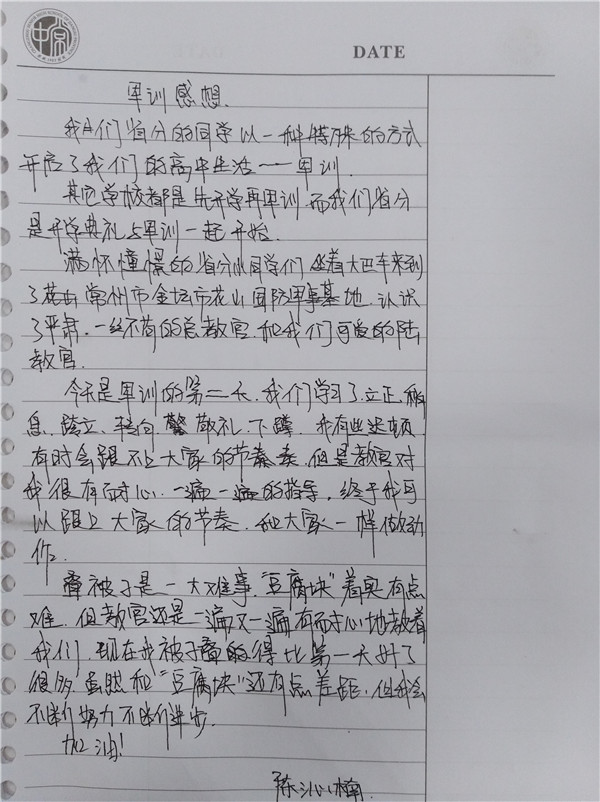 中常
DATE
军训感想.
我们省分的同学以一种特殊的方式
开启了我们的高中生活——军训.
其它学校都是先开学再军训而我们省分
是开学典礼与军训一起开始.
满怀憧憬的省分同学们坐着大巴车来到
了花山常州市金坛市花山国防军事基地.认识
了严肃.一丝不苟的总教官和我们可爱的陆
教官.
今天是军训的第二天.我们学习了立正.稍
息.跨立.转向.敬礼.下蹲.我有些迟顿.
有时会跟不上大家的节奏.但是教官对
我很有耐心.一遍一遍的指导.终于我可
以跟上大家的节奏.和大家一样做动
作.
叠被子是一大难事."豆腐块"着实有点
难.但教官还是一遍又一遍有耐心地教着
我们.现在我被子叠的得比第一天好了
很多.虽然和"豆腐块"还有点差距.但我会
不断努力不断进步.
加油!
陈沁楠.